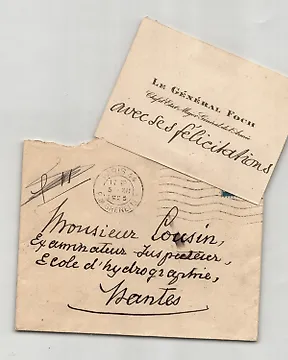 LE GÉNÉRAL FOCH
Chef d'Etat-Major Général de l'Armée
avec ses félicitations
PARIS
Monsieur Cousin,
Examinateur-Inspecteur,
Ecole d'hydrographie,
Nantes